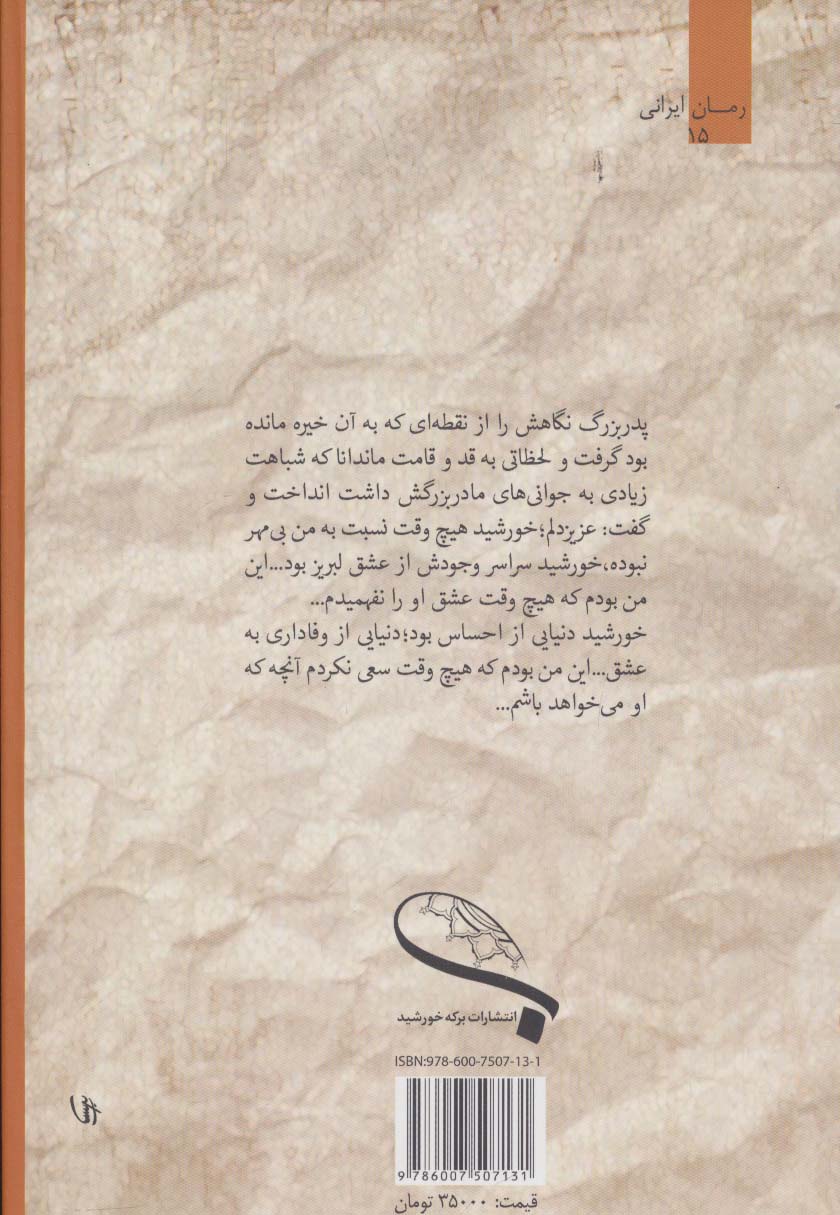 رمــان ایرانی
۱۵
پدربزرگ نگاهش را از نقطه‌ای که به آن خیره مانده
بود گرفت و لحظاتی به قد و قامت ماندانا که شباهت
زیادی به جوانی‌های مادربزرگش داشت انداخت و
گفت: عزیزدلم؛خورشید هیچ وقت نسبت به من بی‌مهر
نبوده،خورشید سراسر وجودش از عشق لبریز بود...این
من بودم که هیچ وقت عشق او را نفهمیدم...
خورشید دنیایی از احساس بود؛دنیایی از وفاداری به
عشق...این من بودم که هیچ وقت سعی نکردم آنچه که
او می‌خواهد باشم...
انتشارات برکه خورشید
ISBN:978-600-7507-13-1
9 786007 507131
قیمت: ۳۵۰۰۰ تومان